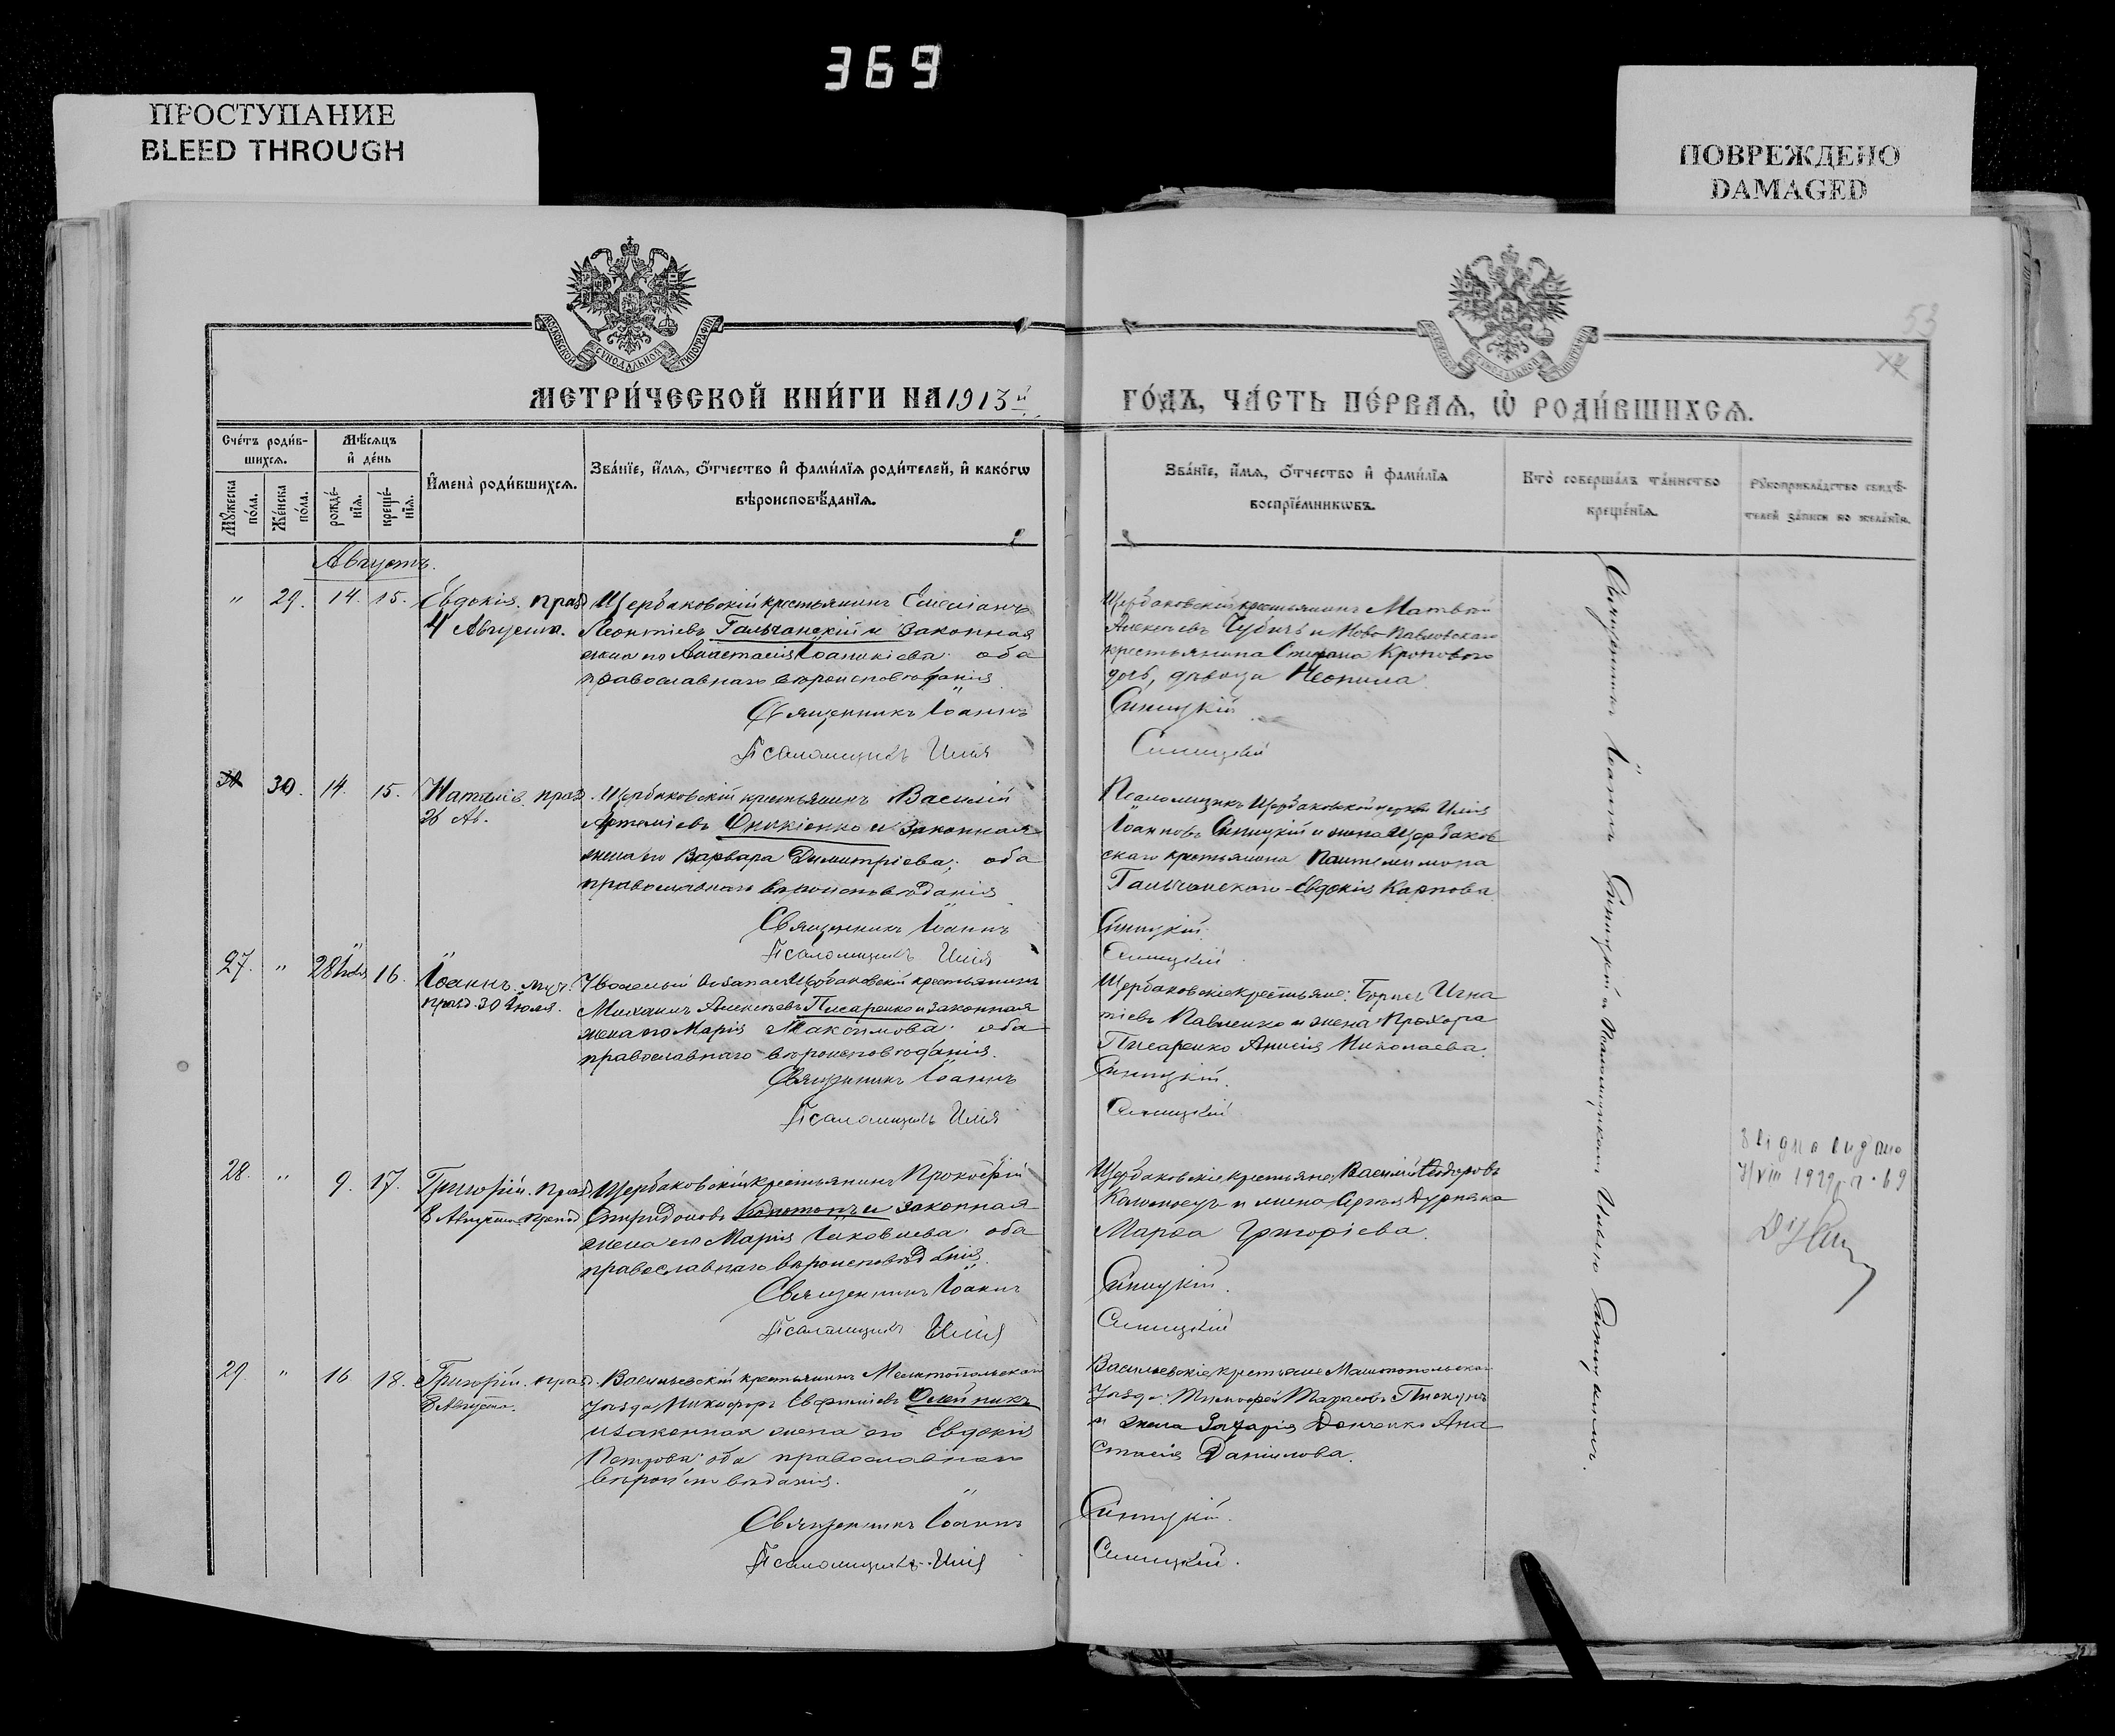 369
ПРОСТУПАНИЕ
BLEED THROUGH
ПОВРЕЖДЕНО
DAMAGED
МОСКОВСКОЙ СѴНОДАЛЬНОЙ ТИПОГРАФІИ
53
МЕТРИ́ЧЕСКОЙ КНИ́ГИ НА 1913й
ГО́ДЪ, ЧА́СТЬ ПЕ́РВАѦ, Ѡ҆ РОДИ́ВШИХСѦ.
Сче́тъ роди́в-
шихсѧ.
Мѣ́сѧцъ
и҆ де́нь
Мꙋ́жеска
по́ла.
Же́нска
по́ла.
рожде́-
нїѧ.
креще́-
нїѧ.
И҆мена̀ роди́вшихсѧ.
Зва́нїе, и҆́мѧ, ѻ҆́тчество и҆ фами́лїѧ роди́телей, и҆ како́гѡ
вѣроисповѣ́данїѧ.
Зва́нїе, и҆́мѧ, ѻ҆́тчество и҆ фами́лїѧ
воспрїе́мникѡвъ.
Кто̀ соверша́лъ та́инство
креще́нїѧ.
Рꙋкоприкла́дство свидѣ́-
телей за́писи по жела́нїю.
Августъ.
" 29. 14. 15. Евдокія. праз
4 Августа.
Щербаковскій крестьянинъ Емеліанъ
Леонтіевъ Гальчанскій и законная
жена его Анастасія Іоанникіева. оба
православнаго вѣроисповѣданія
Священникъ Іоаннъ
Псаломщикъ Илія
Щербаковскій крестьянинъ Матвѣй
Алексѣевъ и Ново-Павловскаго
крестьянина Стефана
дочь, дѣвица Неонила
Синицкій
Синицкій
30. 14. 15. Наталія. праз.
26 Ав.
Щербаковскій крестьянинъ Василій
Артеміевъ и законная
жена его Варвара Димитріева; оба
православнаго вѣроисповѣданія
Священникъ Іоаннъ
Псаломщикъ Илія
Псаломщикъ Щербаковской церкви Илія
Іоанновъ Синицкій и жена Щербаков
скаго крестьянина Пантелимона
Гальчанскаго Евдокія Карпова.
Синицкій.
Синицкій.
27. " 28 Іюля 16. Іоаннъ. муч.
празд. 30 Іюля.
Щербаковскій крестьянинъ
Михаилъ Алексѣевъ Писаренко и законная
жена его Марія Максимова. оба
православнаго вѣроисповѣданія.
Священникъ Іоаннъ
Псаломщикъ Илія
Щербаковскіе крестьяне: Борисъ Игна
тіевъ Павленко и жена Прохора
Писаренко Анисія Николаева.
Синицкій.
Синицкій
28. " 9. 17. Григорій. праз.
8 Августа
Щербаковскій крестьянинъ Прокофій
Спиридоновъ и законная
жена его Марія Іаковлева. оба
православнаго вѣроисповѣданія.
Священникъ Іоаннъ
Псаломщикъ Илія
Щербаковскіе крестьяне Василій Ѳеодоровъ
и жена Сергія Дурняка
Марѳа Григоріева.
Синицкій.
Синицкій
7/VIII 1929 р. 69
29. " 16. 18. Григорій. праз.
8 Августа.
Васильевскій крестьянинъ Мелитопольскаго
уѣзда Никифоръ Евфиміевъ Олейникъ
и законная жена его Евдокія
Петрова. оба православнаго
вѣроисповѣданія.
Священникъ Іоаннъ
Псаломщикъ Илія
Васильевскіе крестьяне Мелитопольскаго
уѣзда: Тимоѳей Тарасовъ Пискунъ
и жена Захарія Донченко Ана
стасія Даніилова.
Синицкій.
Синицкій.
Священникъ Іоаннъ Синицкій и Псаломщикомъ Иліею Синицкимъ.